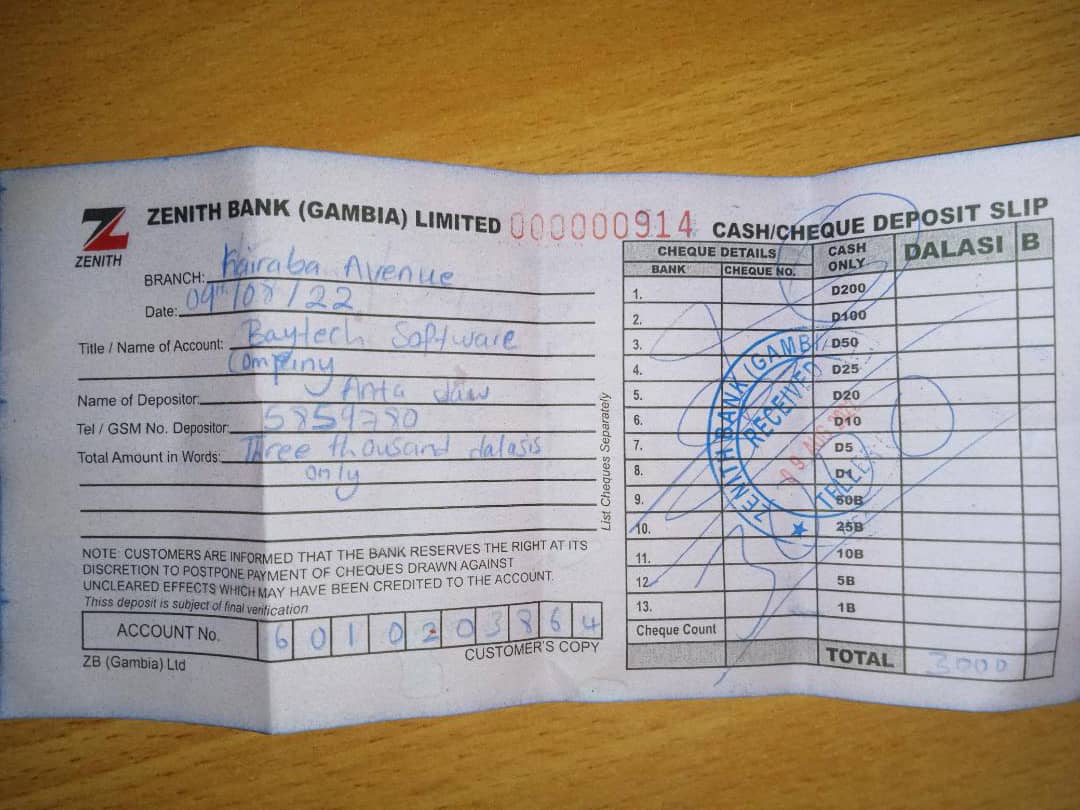 ZENITH
ZENITH BANK (GAMBIA) LIMITED 000000914
BRANCH: Kairaba Avenue
Date: 09/08/22
Title / Name of Account: Baytech Software
Company
Name of Depositor: Anta Jaw
Tel / GSM No. Depositor:
Total Amount in Words: Three thousand dalasis
only
NOTE: CUSTOMERS ARE INFORMED THAT THE BANK RESERVES THE RIGHT AT ITS
DISCRETION TO POSTPONE PAYMENT OF CHEQUES DRAWN AGAINST
UNCLEARED EFFECTS WHICH MAY HAVE BEEN CREDITED TO THE ACCOUNT.
Thiss deposit is subject of final verification
ACCOUNT No. 6010203864
ZB (Gambia) Ltd
CUSTOMER'S COPY
List Cheques Separately
CASH/CHEQUE DEPOSIT SLIP
CHEQUE DETAILS CASH ONLY DALASI B
BANK CHEQUE NO.
1. D200
2. D100
3. D50
4. D25
5. D20
6. D10
7. D5
8. D1
9. 50B
10. 25B
11. 10B
12. 5B
13. 1B
Cheque Count
TOTAL 3000
ZENITH BANK (GAMBI
RECEIVED
09 AUG
TELLER